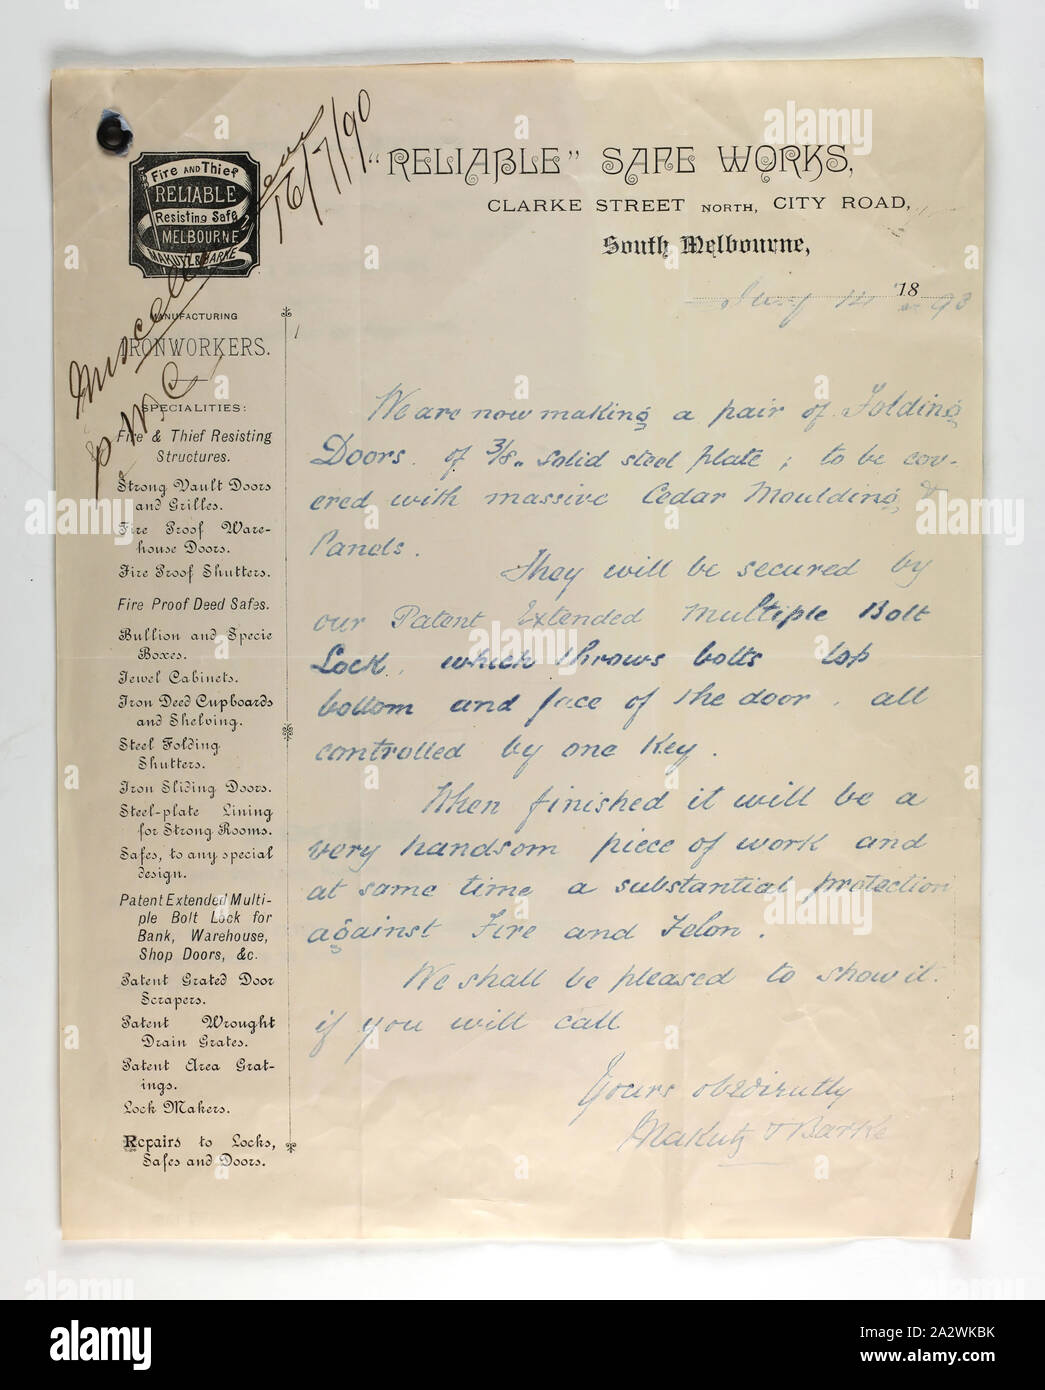 "RELIABLE" SAFE WORKS,
CLARKE STREET NORTH, CITY ROAD,
South Melbourne,
July 14 1890
16/7/90
Fire AND Thief
RELIABLE
Resisting Safe
MELBOURNE
MAKUTZ & BARKE
MANUFACTURING
IRONWORKERS.
SPECIALITIES:
Fire & Thief Resisting
Structures.
Strong Vault Doors
and Grilles.
Fire Proof Ware-
house Doors.
Fire Proof Shutters.
Fire Proof Deed Safes.
Bullion and Specie
Boxes.
Jewel Cabinets.
Iron Deed Cupboards
and Shelving.
Steel Folding
Shutters.
Iron Sliding Doors.
Steel-plate Lining
for Strong Rooms.
Safes, to any special
design.
Patent Extended Multi-
ple Bolt Lock for
Bank, Warehouse,
Shop Doors, &c.
Patent Grated Door
Scrapers.
Patent Wrought
Drain Grates.
Patent Area Grat-
ings.
Lock Makers.
Repairs to Locks,
Safes and Doors.
We are now making a pair of Folding
Doors of 3/8" solid steel plate; to be cov-
ered with massive Cedar Moulding &
Panels.
They will be secured by
our Patent Extended Multiple Bolt
Lock, which throws bolts top
bottom and face of the door, all
controlled by one Key.
When finished it will be a
very handsom piece of work and
at same time a substantial protection
against Fire and Felon.
We shall be pleased to show it
if you will call
Yours obediently
Makutz & Barke
alamy
Image ID: 2A2WKBK
www.alamy.com